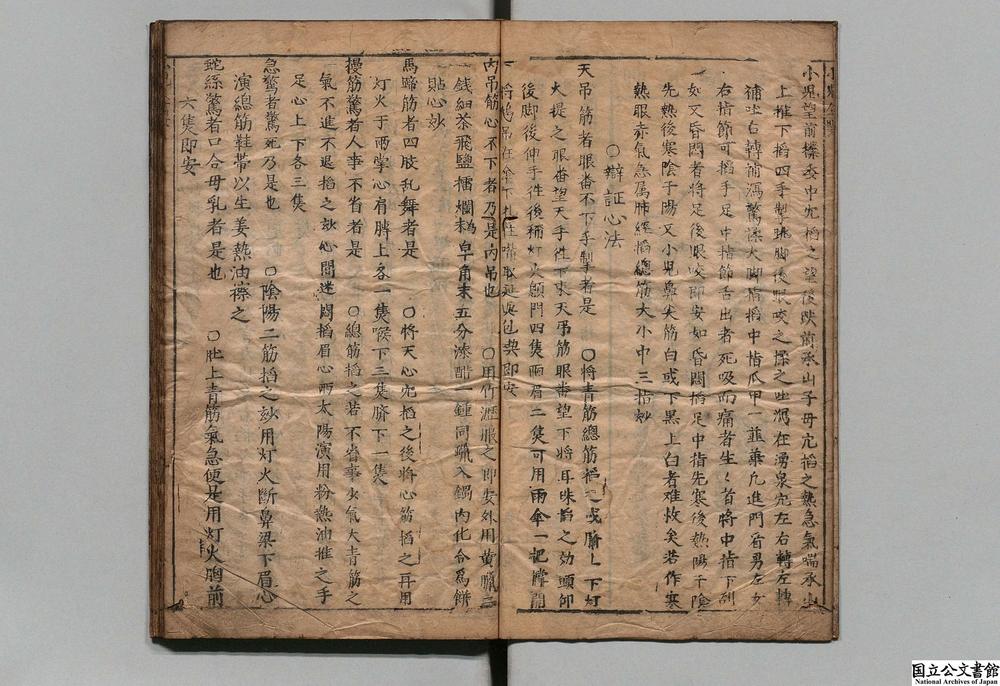 小児望前揉委中穴掐之望後跌前承山子母穴掐之熱急氣喘承山
上推下掐四手掣跳脚後眼咬之揉之吐瀉在湧泉穴左右轉左轉
補吐右轉補瀉驚悸大脚指掐中指爪甲一韮葉凢進門看男左女
右指節可掐手足中指節舌出者死吸而痛者生〻者將中指下刮
如又昏悶者將足後眼咬即安如昏悶掐足中指先寒後熱陽干陰
先熱後寒陰于陽又小児鼻尖筋白或下黒上白者难救矣若作寒
熱眼赤氣急属肺經掐總筋大小中三指妙
〇辯証心法
天吊筋者眼番不下手掣者是 〇將青筋總筋掐之或臍上下灯
火提之眼番望天手性下來天吊筋眼番望下將耳珠掐之効頭仰
後脚後伸手性後稱灯火顖門四隻両眉二隻可用雨傘一把撑開
內吊筋心不下者乃是內吊也 〇用竹瀝服之即安外用黄臘二
銭細茶飛鹽擂爛為末皂角末五分漆醋一鍾同臘入鍋內化合為餅
貼心妙
馬蹄筋者四肢乱舞者是 〇將天心穴掐之後將心筋掐之再用
灯火于两掌心肩膊上各一隻喉下三隻臍下一隻
摱筋驚者人事不省者是 〇總筋掐之若不省事少氣大青筋之
氣不進不退掐之妙心間迷悶掐眉心両太陽演用粉熱油推之手
足心上下各三隻
急驚者驚死乃是也 〇陰陽二筋掐之妙用灯火斷鼻梁下眉心
演總筋鞋帶以生姜熱油㨰之
蛇絲驚者口合母乳者是也 〇肚上青筋氣急便是用灯火胸前
六隻即安
国立公文書館
National Archives of Japan